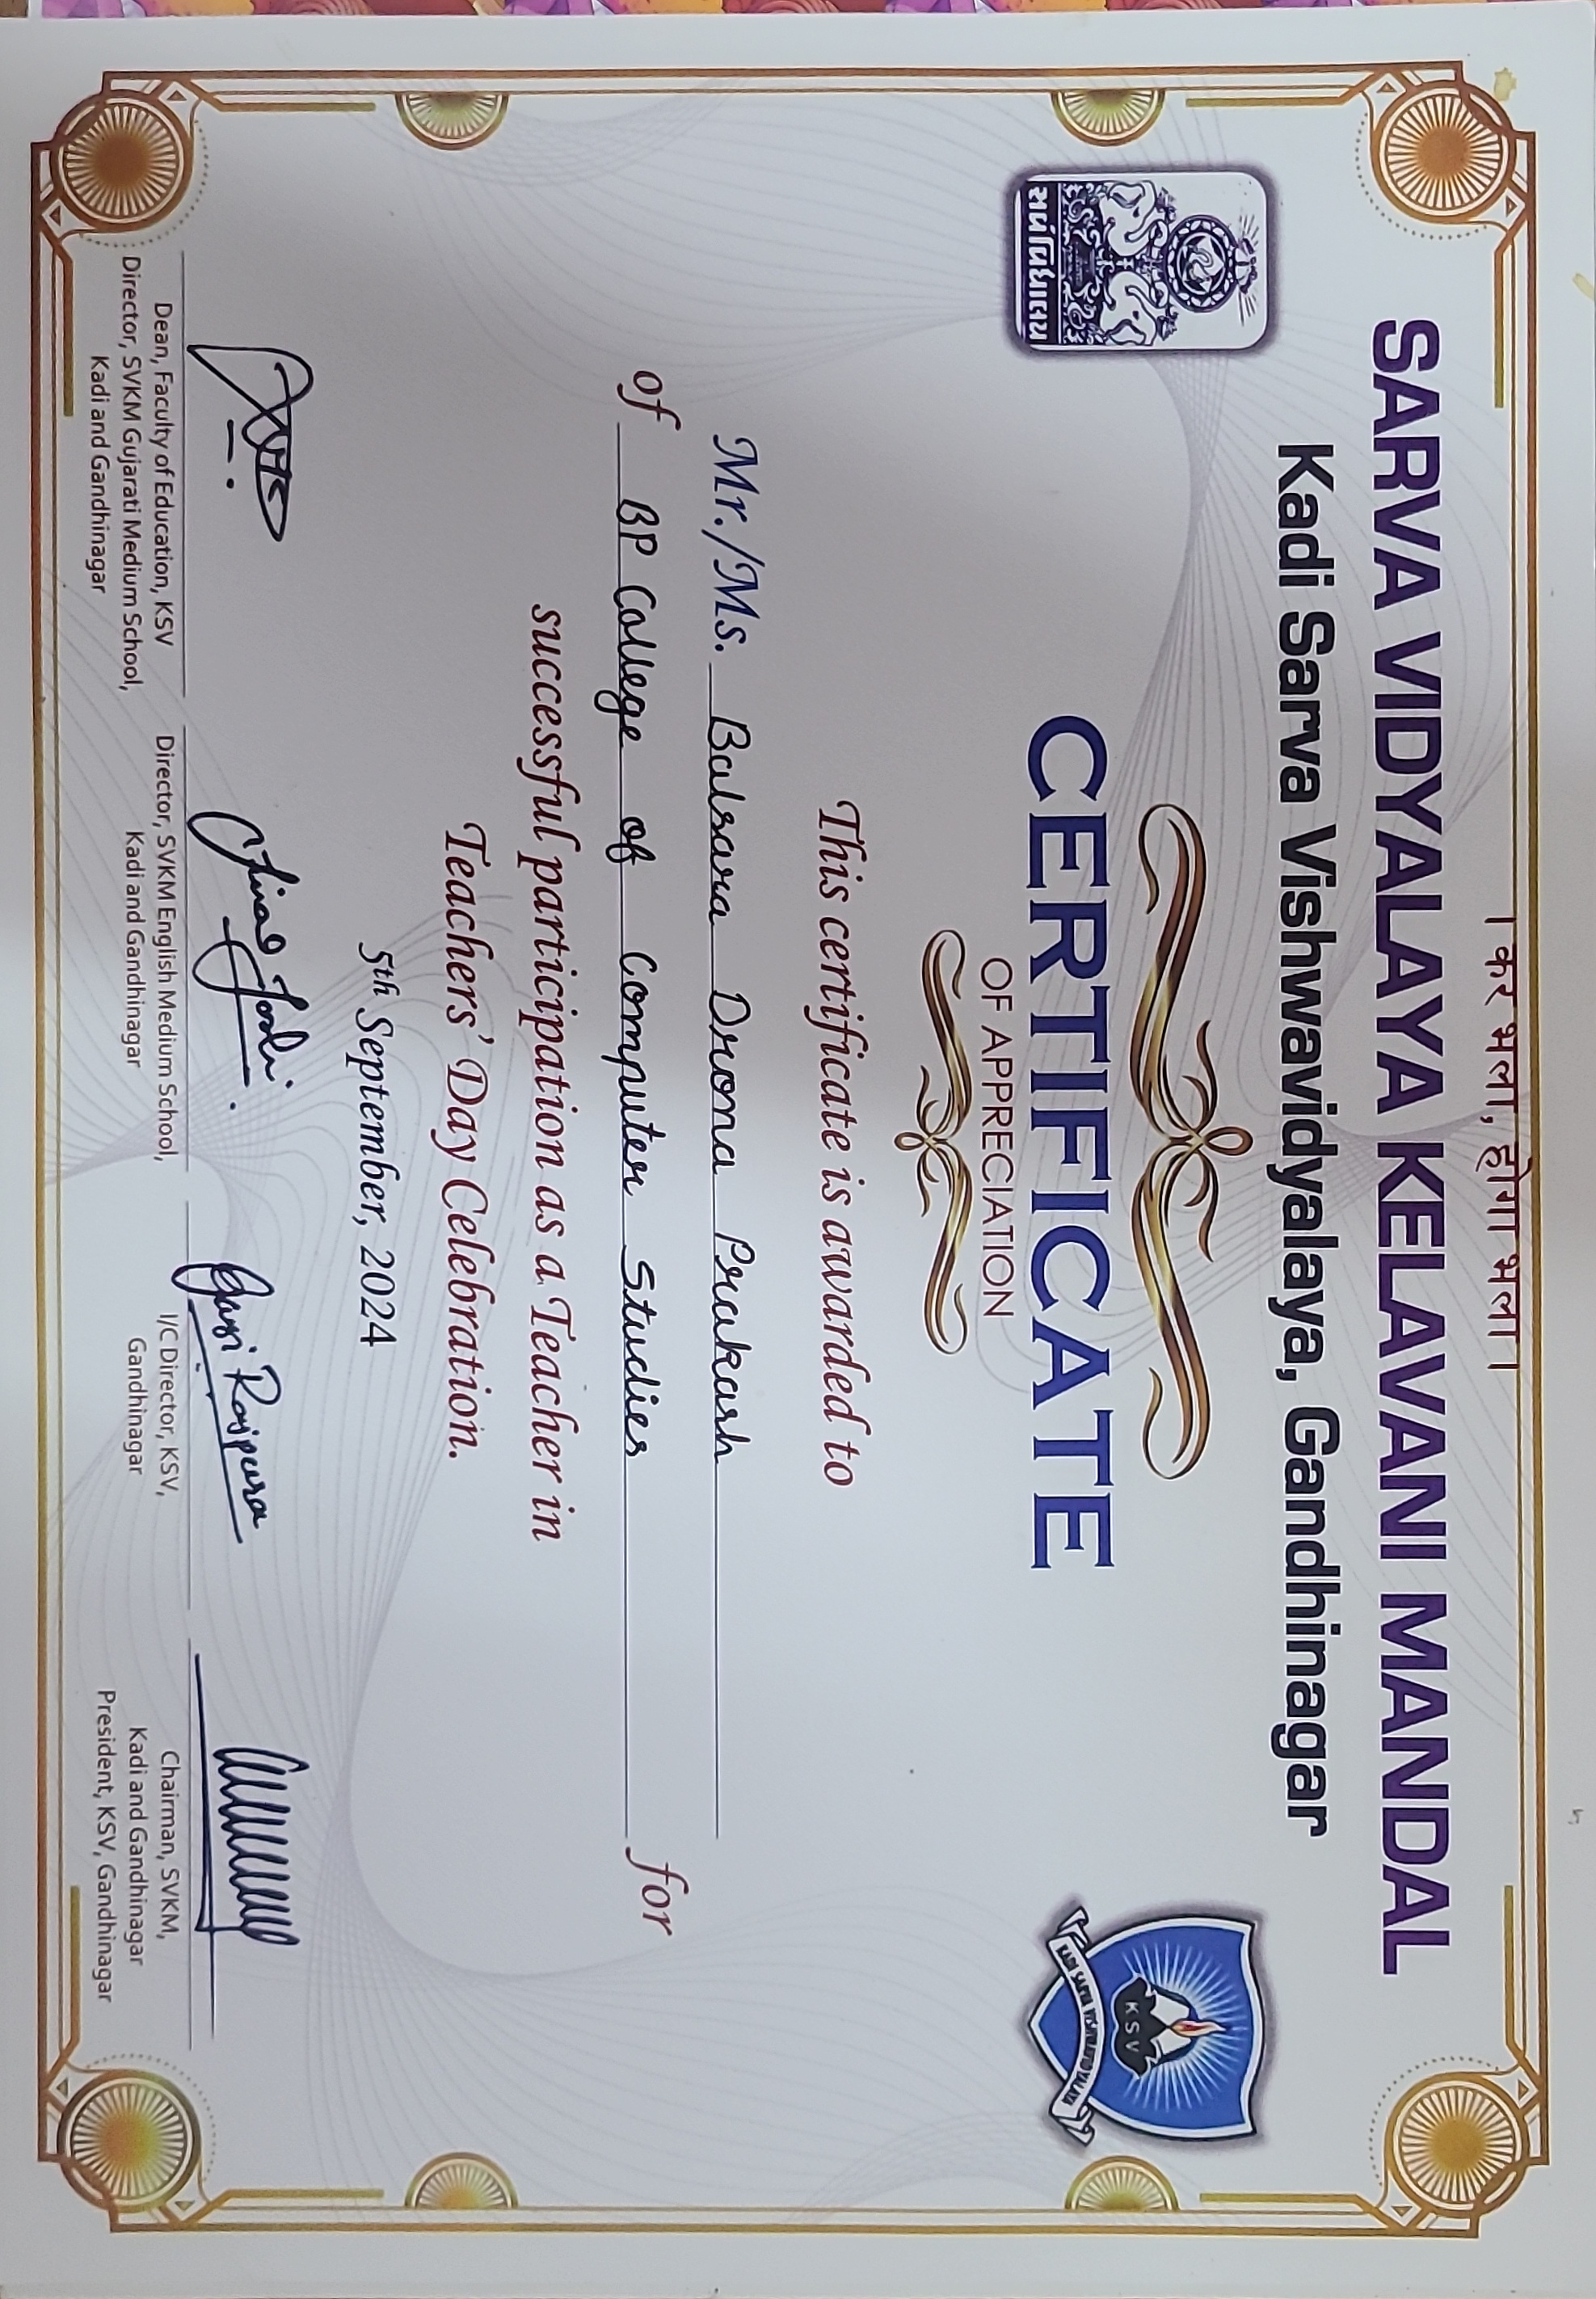 । कर भला, होगा भला ।
SARVA VIDYALAYA KELAVANI MANDAL
Kadi Sarva Vishwavidyalaya, Gandhinagar
સર્વ વિદ્યાલય
KSV
KADI SARVA VISHWAVIDYALAYA
CERTIFICATE
OF APPRECIATION
This certificate is awarded to
Mr./Ms. Balsara Drona Prakash
of BP College of Computer Studies for
successful participation as a Teacher in
Teachers' Day Celebration.
5th September, 2024
Jinal Joshi
Rajpura
Dean, Faculty of Education, KSV
Director, SVKM Gujarati Medium School,
Kadi and Gandhinagar
Director, SVKM English Medium School,
Kadi and Gandhinagar
I/C Director, KSV,
Gandhinagar
Chairman, SVKM,
Kadi and Gandhinagar
President, KSV, Gandhinagar